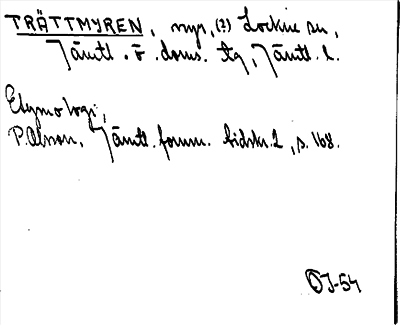 TRÄTTMYREN, myr, (?) Lockne sn,
Jämtl. ö. doms. tg, Jämtl. l.
Etymologi:
P. Olsson, Jämtl. fornm. bidskr. 2, s. 168.
OJ-54